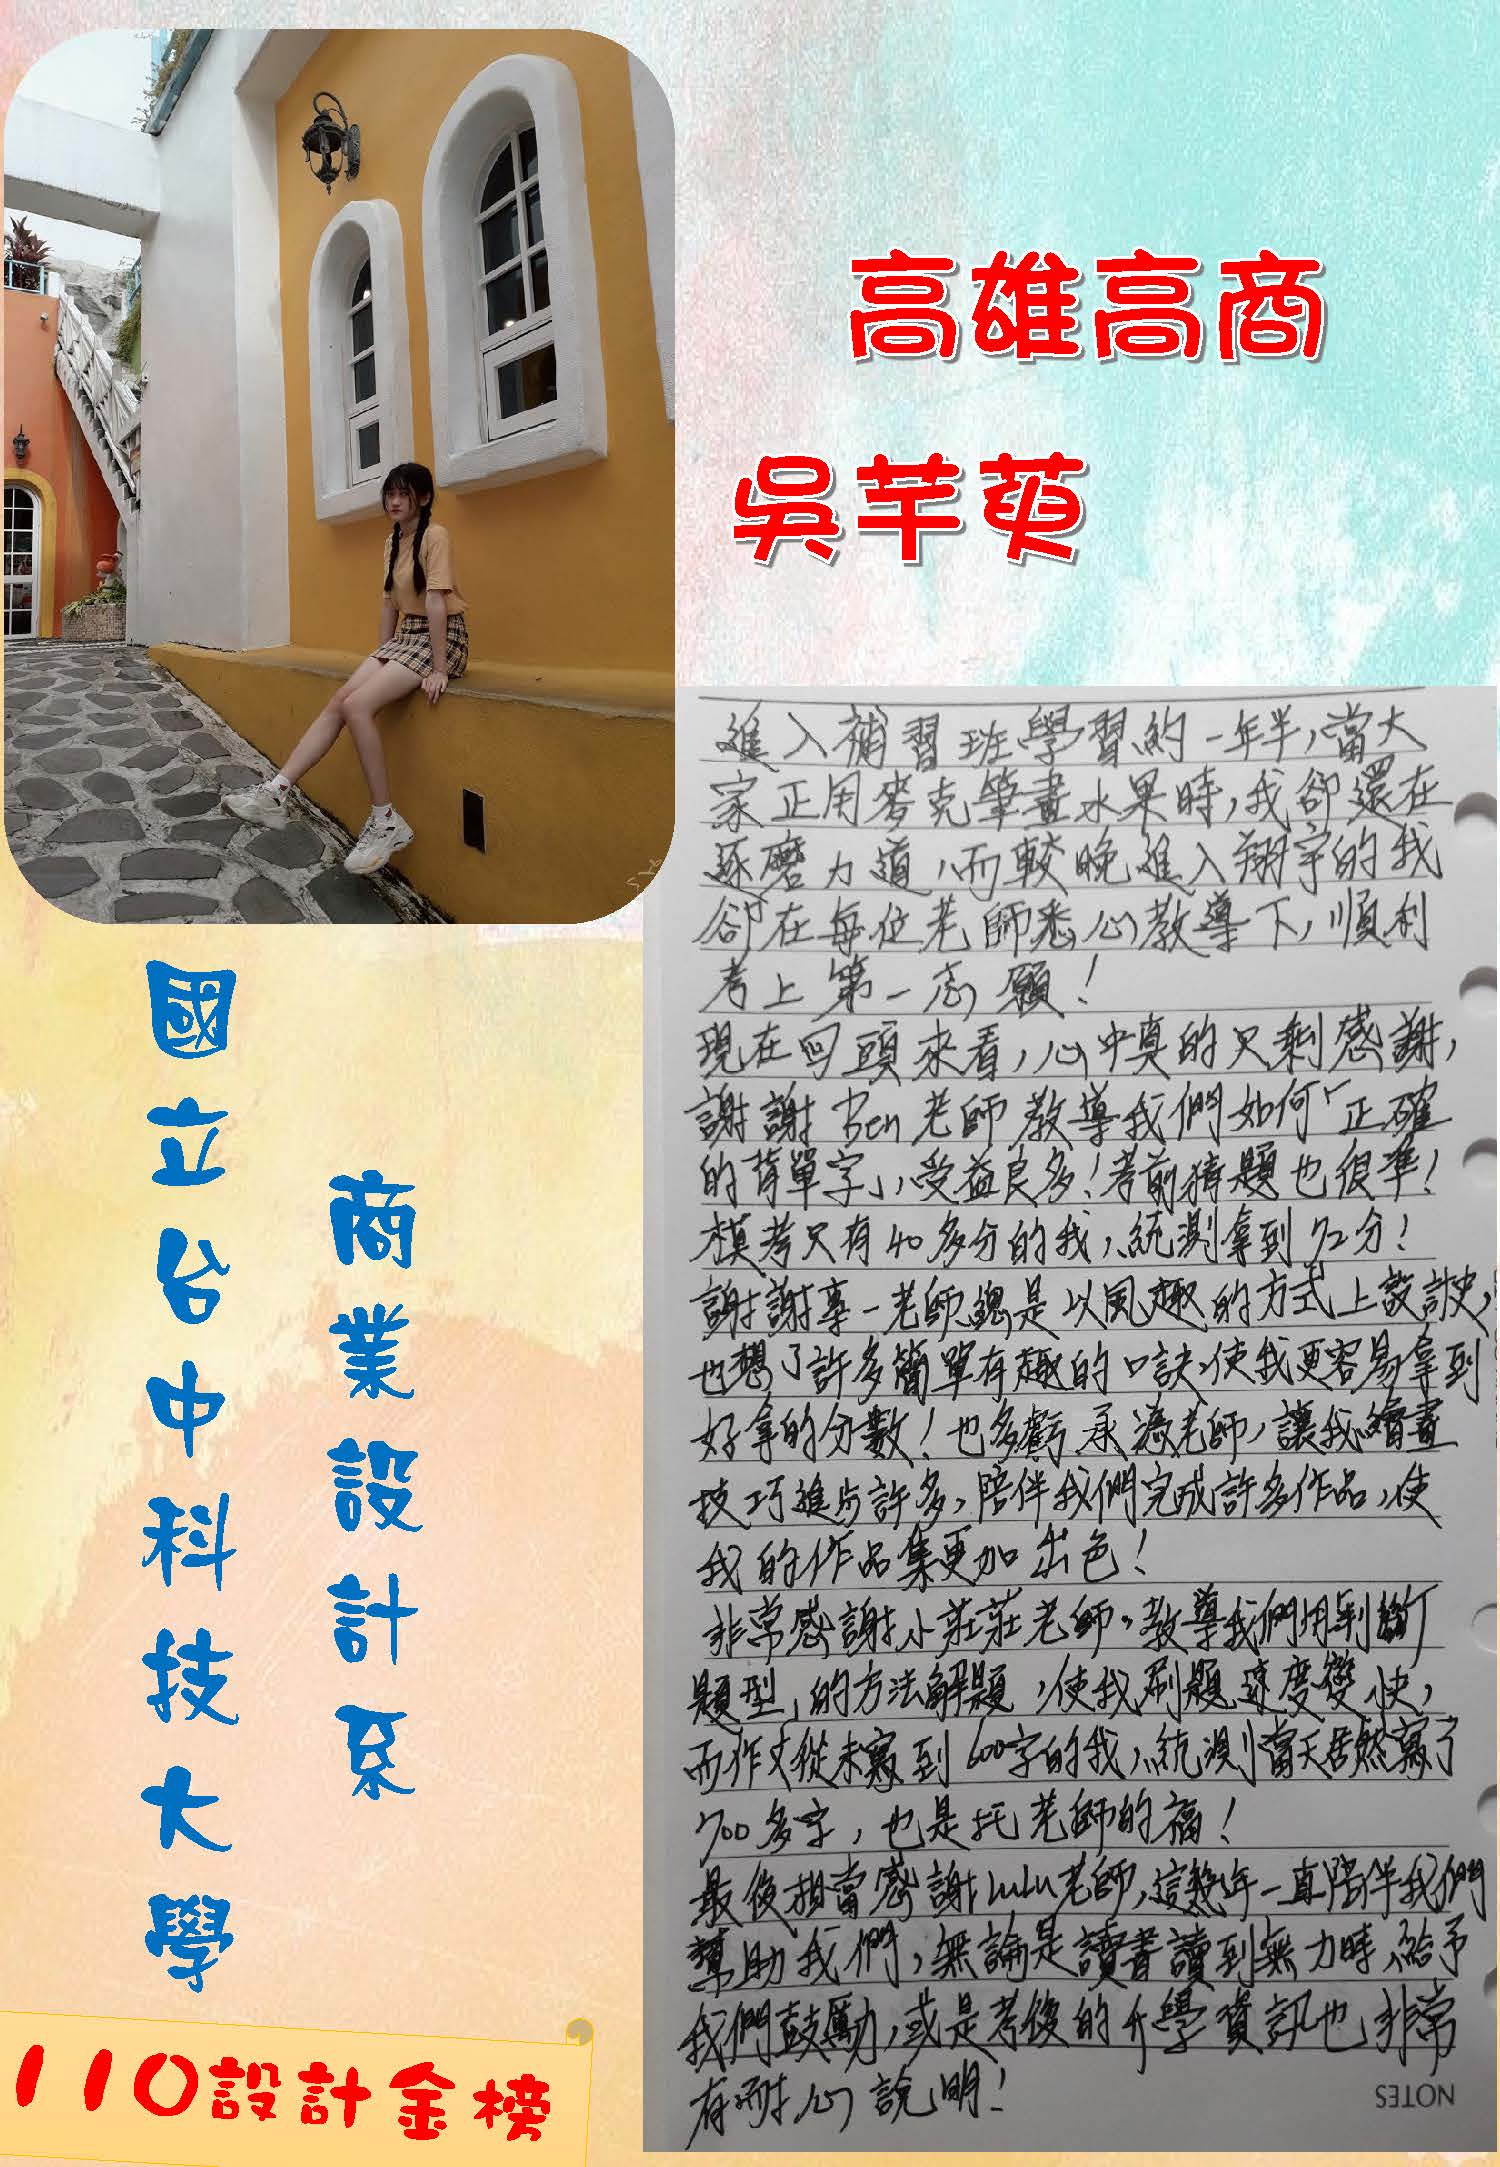 高雄高商
吳芊萸
國立台中科技大學
商業設計系
110設計金榜
進入補習班學習約一年半,當大
家正用麥克筆畫水果時,我卻還在
琢磨力道,而較晚進入翔宇的我
卻在每位老師悉心教導下,順利
考上第一志願!
現在回頭來看,心中真的只剩感謝,
謝謝Ben老師教導我們如何「正確
的背單字」,受益良多!考前猜題也很準!
模考只有40多分的我,統測拿到72分!
謝謝 一老師總是以風趣的方式上設計史,
也想了許多簡單有趣的口訣,使我更容易拿到
好拿的分數!也多虧承 老師,讓我繪畫
技巧進步許多,陪伴我們完成許多作品,使
我的作品集更加出色!
非常感謝小莊莊老師,教導我們用判斷
題型」的方法解題,使我刷題速度變快,
而作文從未寫到600字的我,統測當天居然寫了
700多字,也是托老師的福!
最後相當感謝LuLu老師,這幾年一直陪伴我們
幫助我們,無論是讀書讀到無力時,給予
我們鼓勵,或是考後的升學資訊也非常
有耐心說明!
NOTES